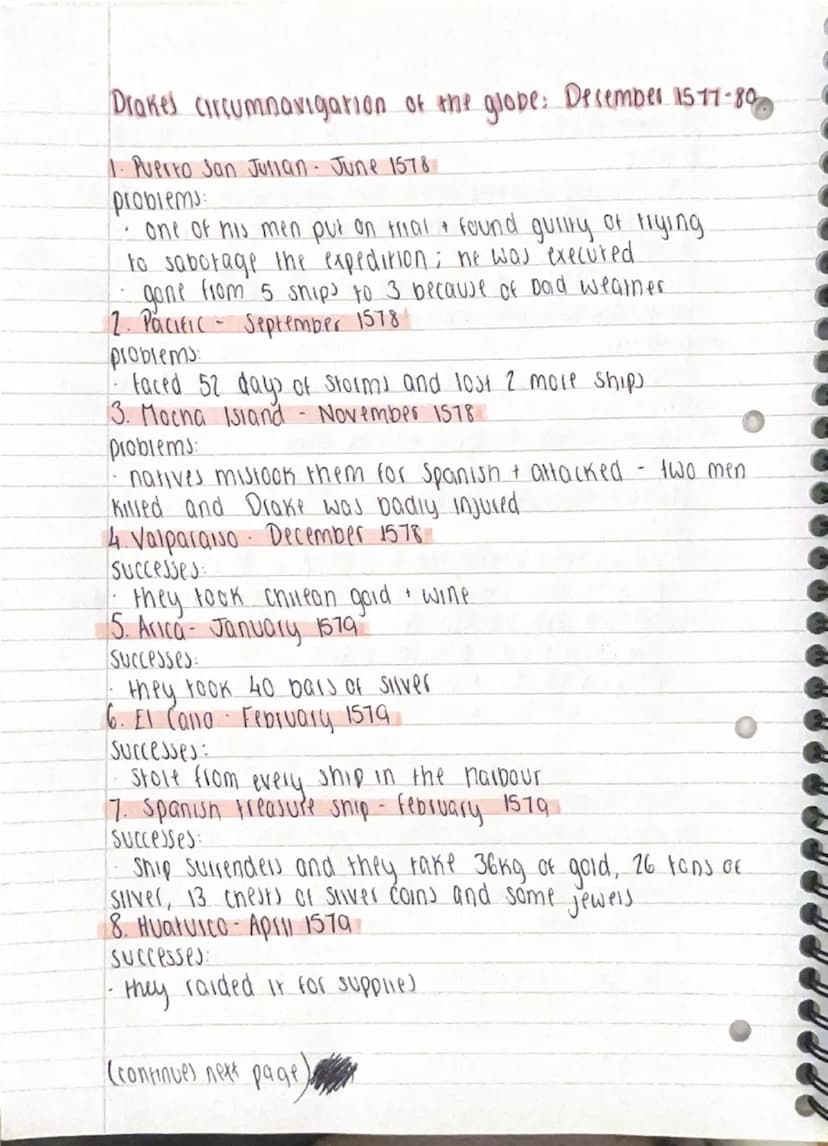 Drakes circumnavigation of the globe: December 1577-80
1. Puerto San Julian - June 1578
problems:
· one of his men put on trial + found guilty of trying
to sabotage the expedition; he was executed
· gone from 5 ships to 3 because of bad weather
2. Pacific - September 1578
problems:
· faced 52 days of storms and lost 2 more ships
3. Mocha Island - November 1578
problems:
· natives mistook them for Spanish + attacked - two men
killed and Drake was badly injured
4. Valparaiso - December 1578
successes:
· they took chilean gold + wine
5. Arica - January 1579
successes:
· they took 40 bars of silver
6. El Cano - February 1579
successes:
· stole from every ship in the harbour
7. Spanish treasure ship - February 1579
successes:
· ship surrenders and they take 36kg of gold, 26 tons of
silver, 13 chests of silver coins and some jewels
8. Huatulco - April 1579
successes:
· they raided it for supplies
(continues next page)